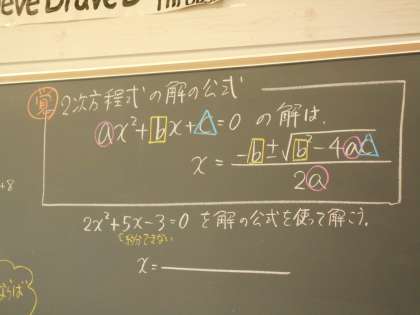 eve Brave D
覚 2次方程式の解の公式
ax²+bx+c=0 の解は、
x = (-b±√(b²-4ac))/(2a)
+8
2x²+5x-3=0 を解の公式を使って解こう。
x=
ならば